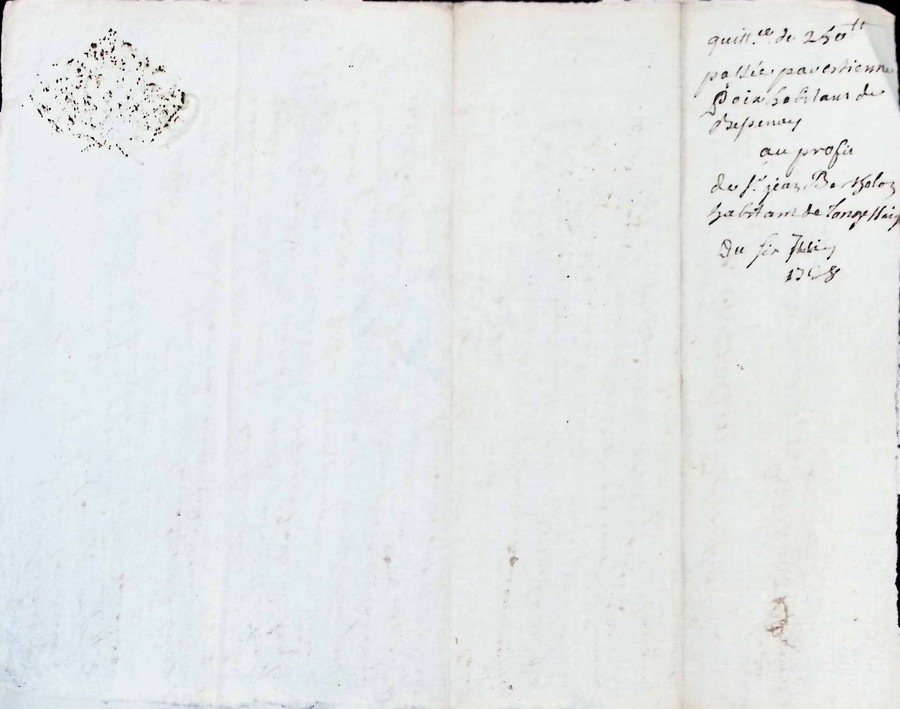 quitt.ce de 250tt
passée par estienne
Poix habitant de
au profit
de Sr. jean Bertholon
habitant de Longessaig
Du six